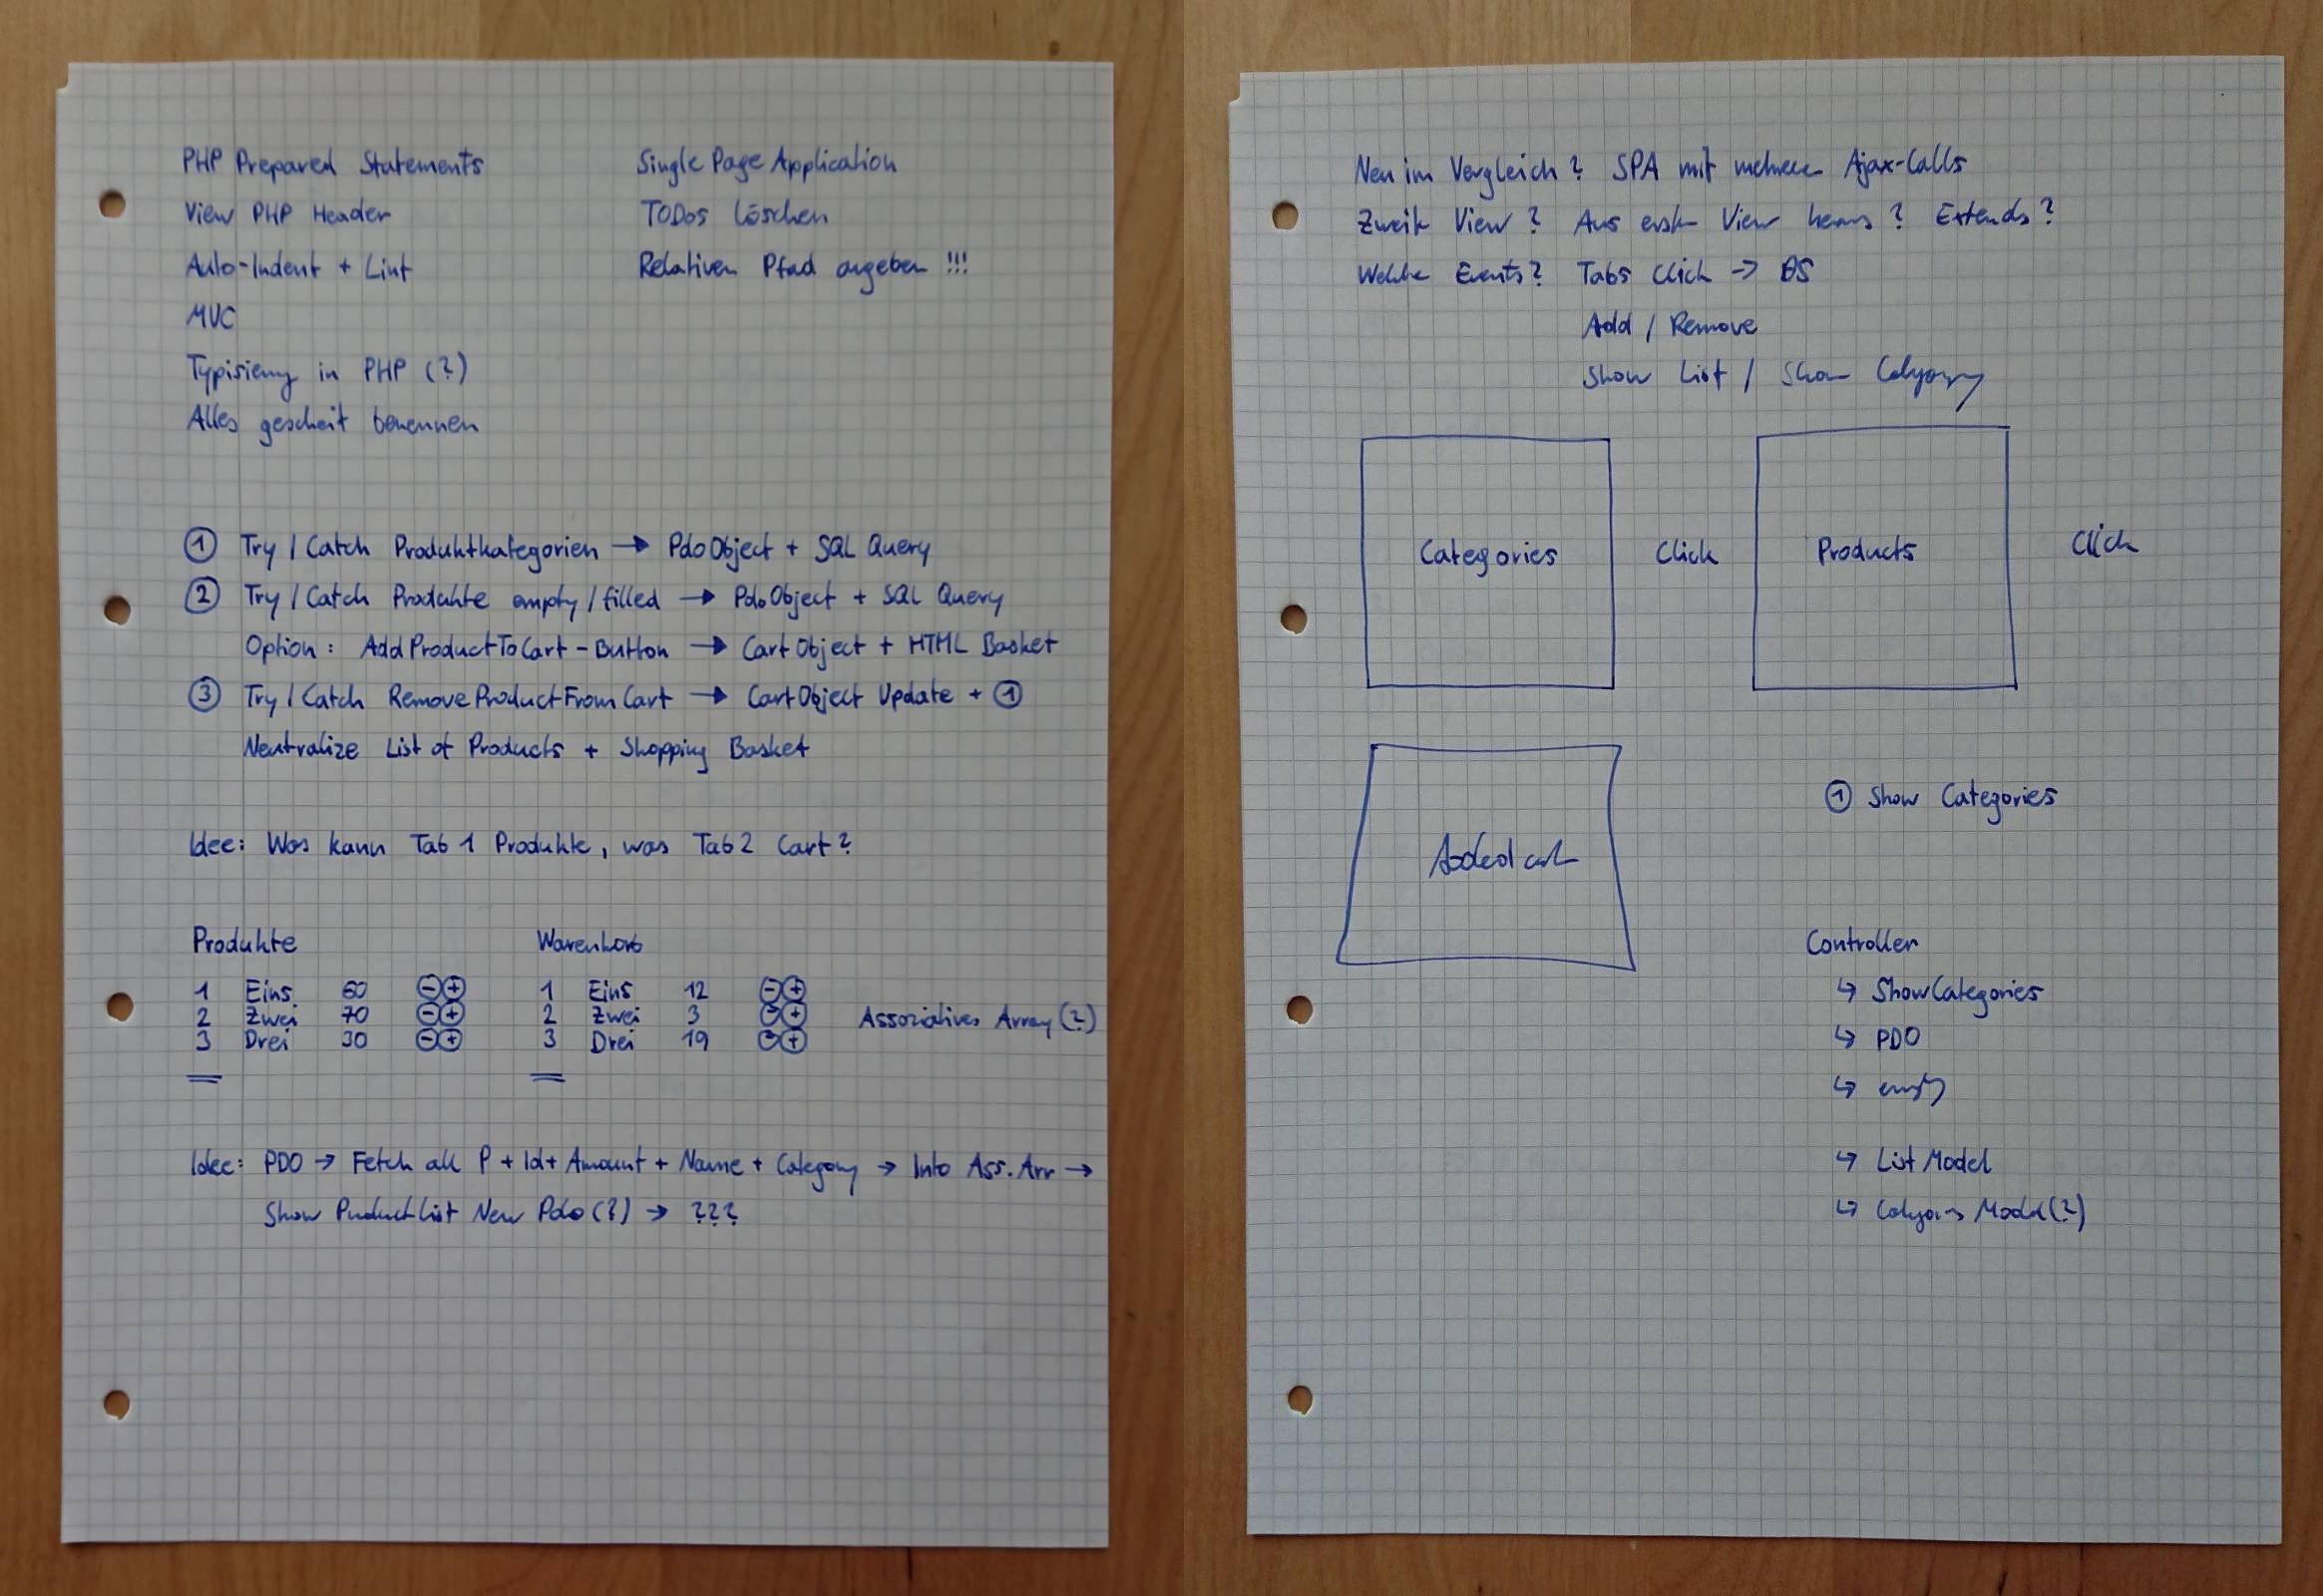 PHP Prepared Statements
View PHP Header
Auto-Indent + Lint
MVC
Typisierung in PHP (?)
Alles gescheit benennen
Single Page Application
TODOs löschen
Relativen Pfad angeben !!!
① Try / Catch Produktkategorien → PdoObject + SQL Query
② Try / Catch Produkte empty / filled → PdoObject + SQL Query
Option: AddProductToCart-Button → CartObject + HTML Basket
③ Try / Catch RemoveProductFromCart → CartObject Update + ①
Neutralize List of Products + Shopping Basket
Idee: Was kann Tab 1 Produkte, was Tab 2 Cart?
Produkte
1 Eins 60 - +
2 Zwei 70 - +
3 Drei 30 - +
Warenkorb
1 Eins 12 - +
2 Zwei 3 - +
3 Drei 19 - +
Assoziatives Array (?)
Idee: PDO → Fetch all P + Id + Amount + Name + Category → Into Ass. Arr →
Show Productlist New Pdo (?) → ???
Neu im Vergleich? SPA mit mehreren Ajax-Calls
Zweite View? Aus erster View heraus? Extends?
Welche Events? Tabs Click →
Add / Remove
Show List / Show Category
Categories
Click
Products
Click
Added
① Show Categories
Controller
↳ ShowCategories
↳ PDO
↳ empty
↳ List Model
↳ Model (?)